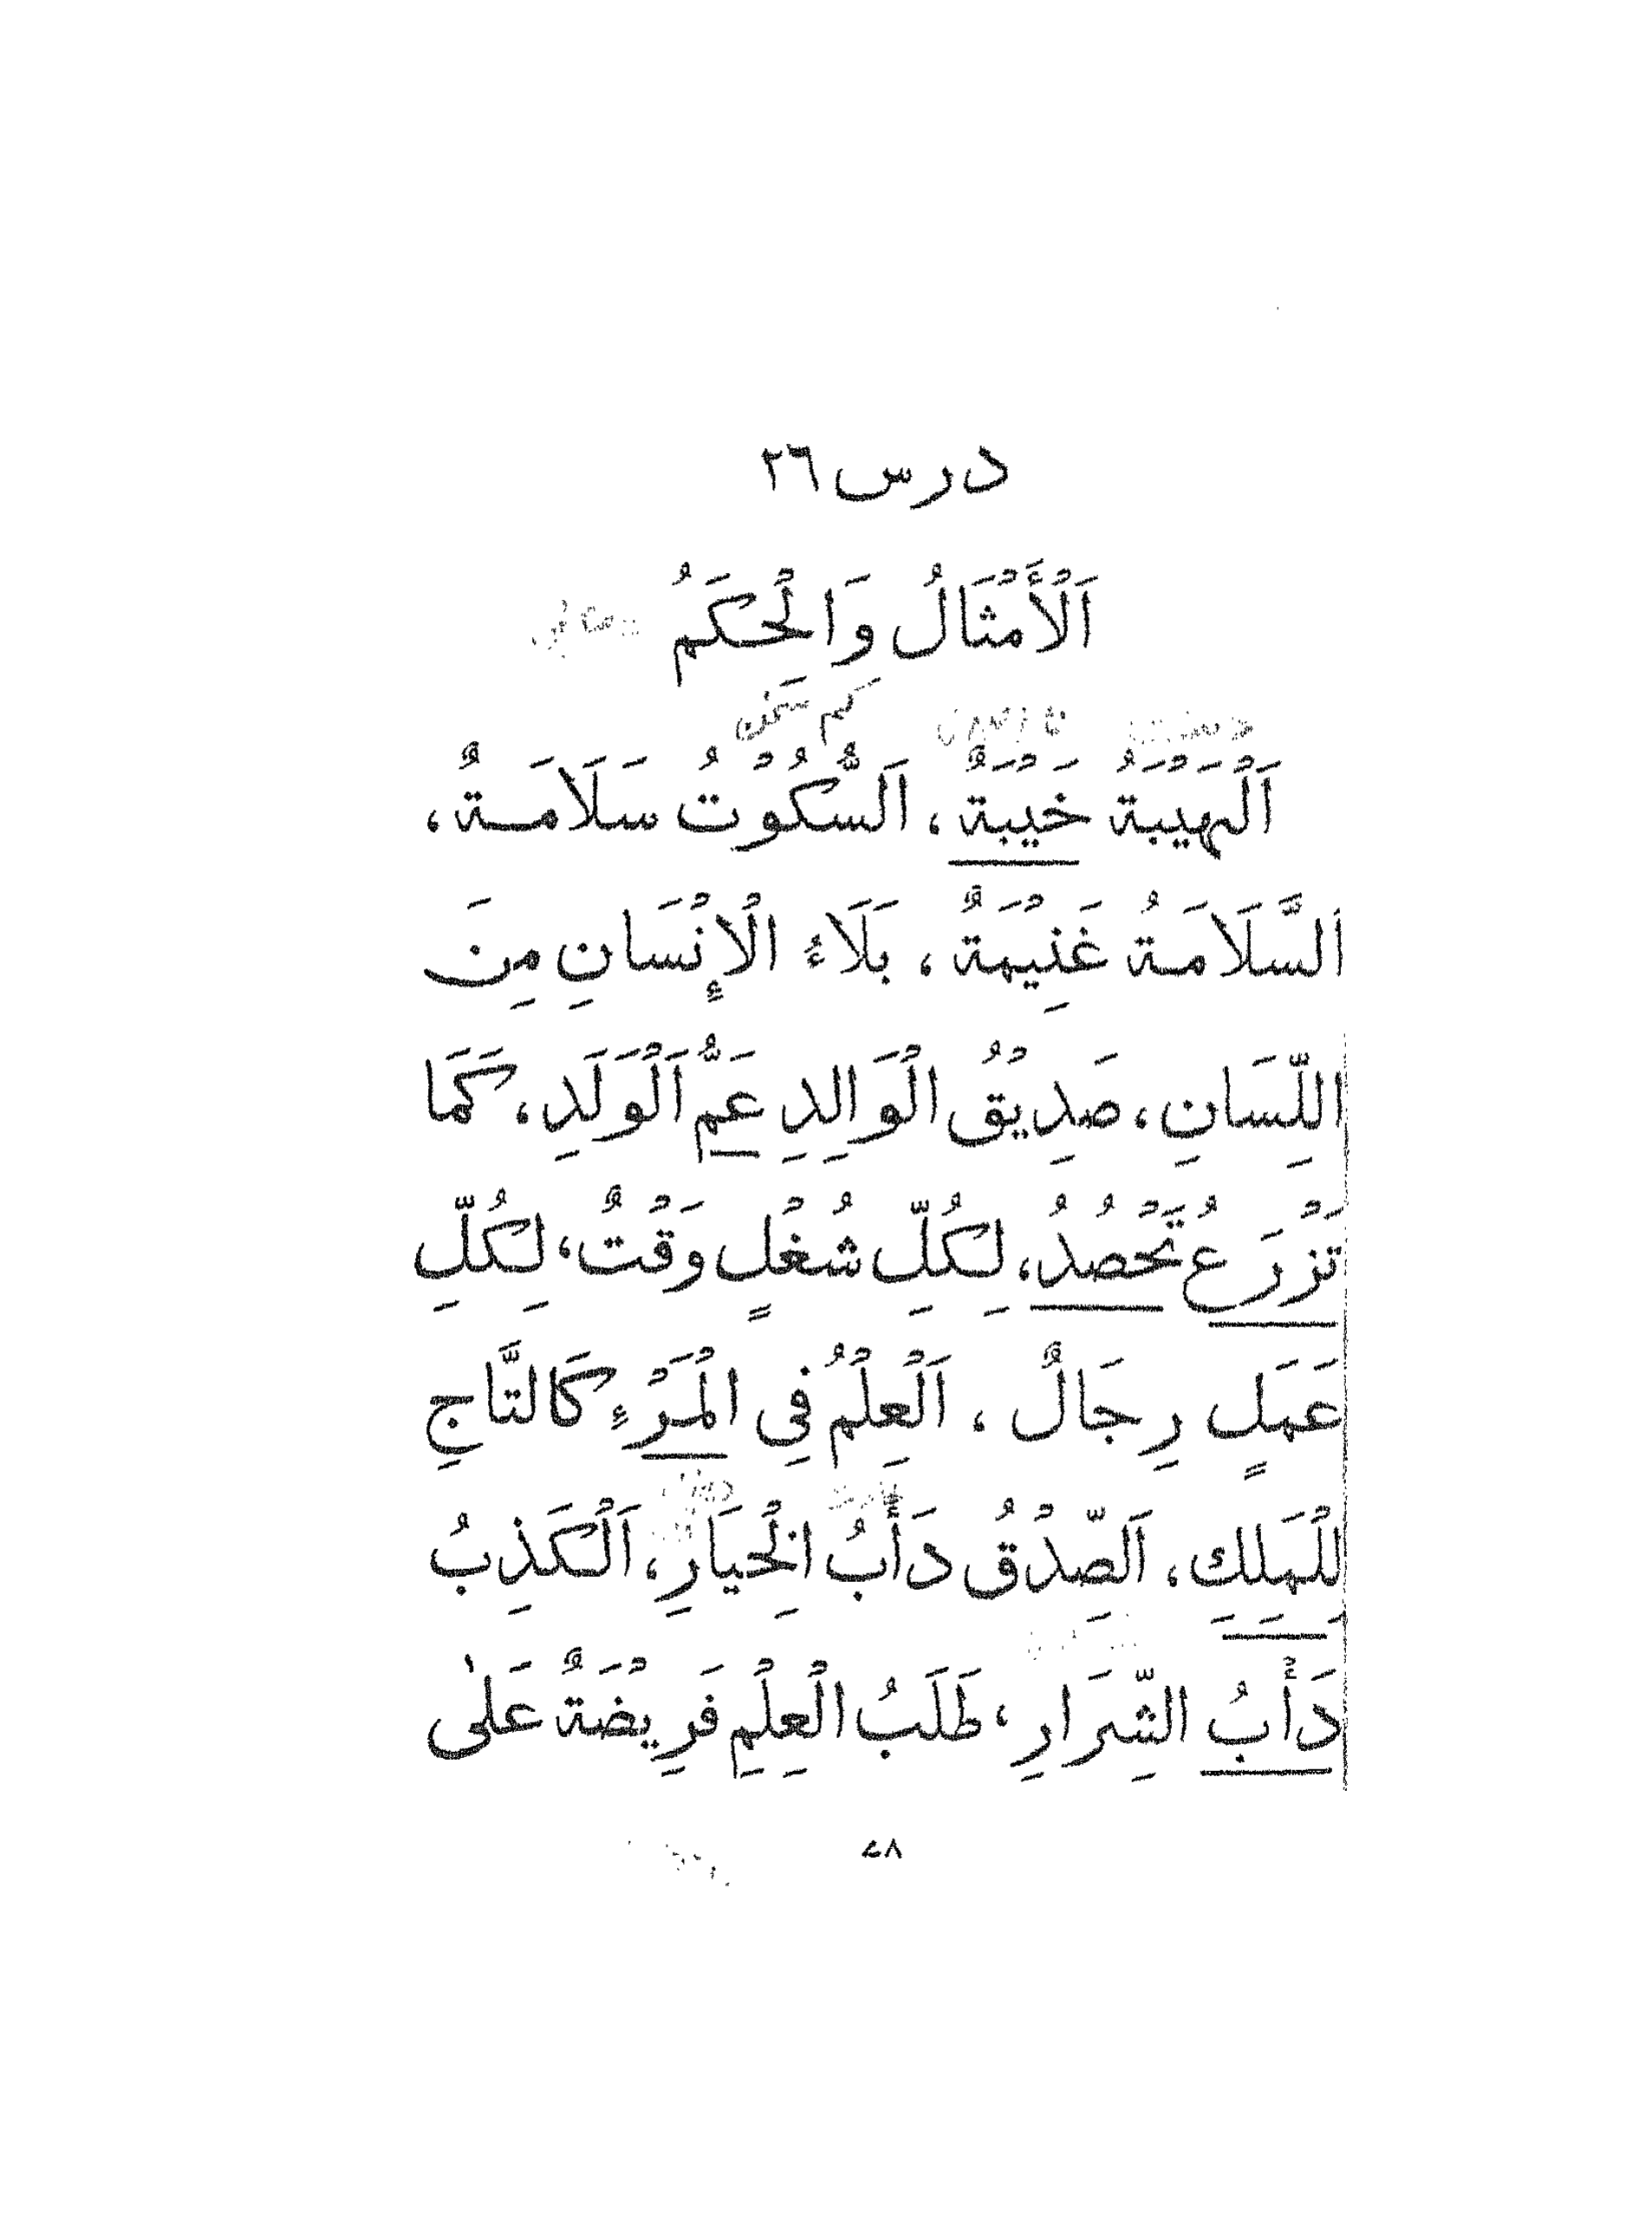 درس ٢٦
اَلْأَمْثَالُ وَالْحِكَمُ
كم سخن
اَلْهَيْبَةُ خَيْبَةٌ، اَلسُّكُوْتُ سَلَامَةٌ،
اَلسَّلَامَةُ غَنِيْمَةٌ، بَلَاءُ الْإِنْسَانِ مِنَ
اللِّسَانِ، صَدِيْقُ الْوَالِدِ عَمُّ اَلْوَلَدِ، كَمَا
تَزْرَعُ تَحْصُدُ، لِكُلِّ شُغْلٍ وَقْتٌ، لِكُلِّ
عَمَلٍ رِجَالٌ، اَلْعِلْمُ فِي الْمَرْءِ كَالتَّاجِ
لِلْمَلِكِ، اَلصِّدْقُ دَأْبُ الْخِيَارِ، اَلْكَذِبُ
دَأْبُ الشِّرَارِ، طَلَبُ الْعِلْمِ فَرِيْضَةٌ عَلٰى